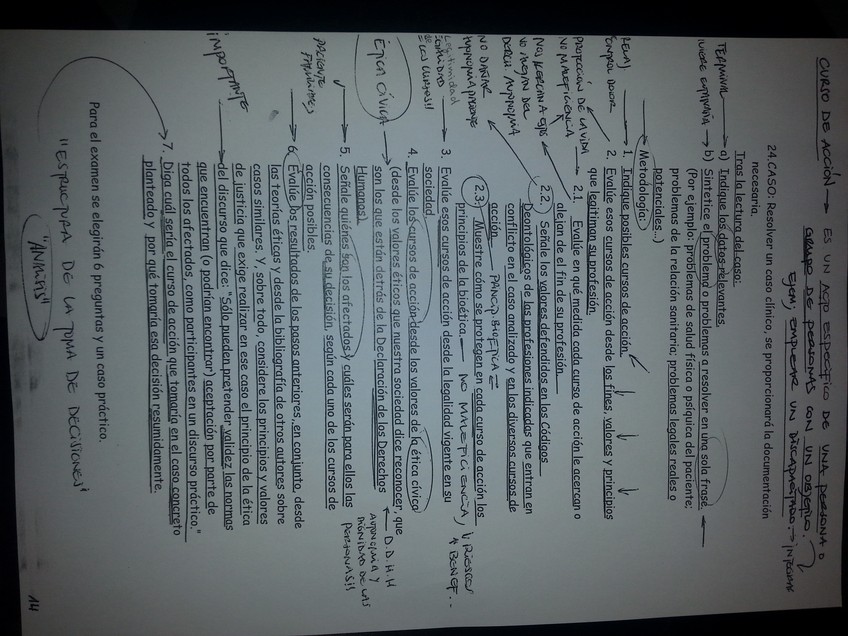 CURSO DE ACCIÓN → ES UN ACTO ESPECÍFICO DE UNA PERSONA O
GRUPO DE PERSONAS CON UN OBJETIVO.
EJEM; EMPLEAR UN DISCAPACITADO → INTEGRAR
24.CASO: Resolver un caso clínico, se proporcionará la documentación
necesaria.
Tras la lectura del caso:
TERMINAL → a) Indique los datos relevantes.
QUIERE EUTANASIA → b) Sintetice el problema o problemas a resolver en una sola frase.
(Por ejemplo: problemas de salud física o psíquica del paciente;
problemas de la relación sanitaria; problemas legales reales o
potenciales..)
Metodología:
1. Indique posibles cursos de acción.
CONTROL DOLOR
2. Evalúe esos cursos de acción desde los fines, valores y principios
que legitiman su profesión.
PROTECCIÓN DE LA VIDA
NO MALEFICIENCIA
2.1. Evalúe en qué medida cada curso de acción le acercan o
alejan de el fin de su profesión.
2.2. Señale los valores defendidos en los Códigos
Deontológicos de las profesiones indicadas que entran en
conflicto en el caso analizado y en los diversos cursos de
acción
NO DAÑAR
2.3. Muestre cómo se protegen en cada curso de acción los
principios de la bioética.
PANCP BIOETICA =
NO MALEFICIENCIA, ↓ RIESGOS
↑ BENEF..
Legitimidad
3. Evalúe esos cursos de acción desde la legalidad vigente en su
sociedad.
4. Evalúe los cursos de acción desde los valores de la ética cívica
(desde los valores éticos que nuestra sociedad dice reconocer, que
son los que están detrás de la Declaración de los Derechos
Humanos).
ETICA CÍVICA
← D.D.H.H
AUTONOMIA Y
DIGNIDAD DE LAS
PERSONAS!!
5. Señale quiénes son los afectados y cuáles serán para ellos las
consecuencias de su decisión, según cada uno de los cursos de
acción posibles.
PACIENTE
FAMILIARES
6. Evalúe los resultados de los pasos anteriores, en conjunto desde
las teorías éticas y desde la bibliografía de otros autores sobre
casos similares. Y, sobre todo, considere los principios y valores
de justicia que exige realizar en ese caso el principio de la ética
del discurso que dice: "Sólo pueden pretender validez las normas
que encuentran (o podrían encontrar) aceptación por parte de
todos los afectados, como participantes en un discurso práctico."
IMPORTANTE
7. Diga cuál sería el curso de acción que tomaría en el caso concreto
planteado y por qué tomaría esa decisión resumidamente.
Para el examen se elegirán 6 preguntas y un caso práctico.
"ESTRUCTURA DE LA TOMA DE DECISIONES"
14